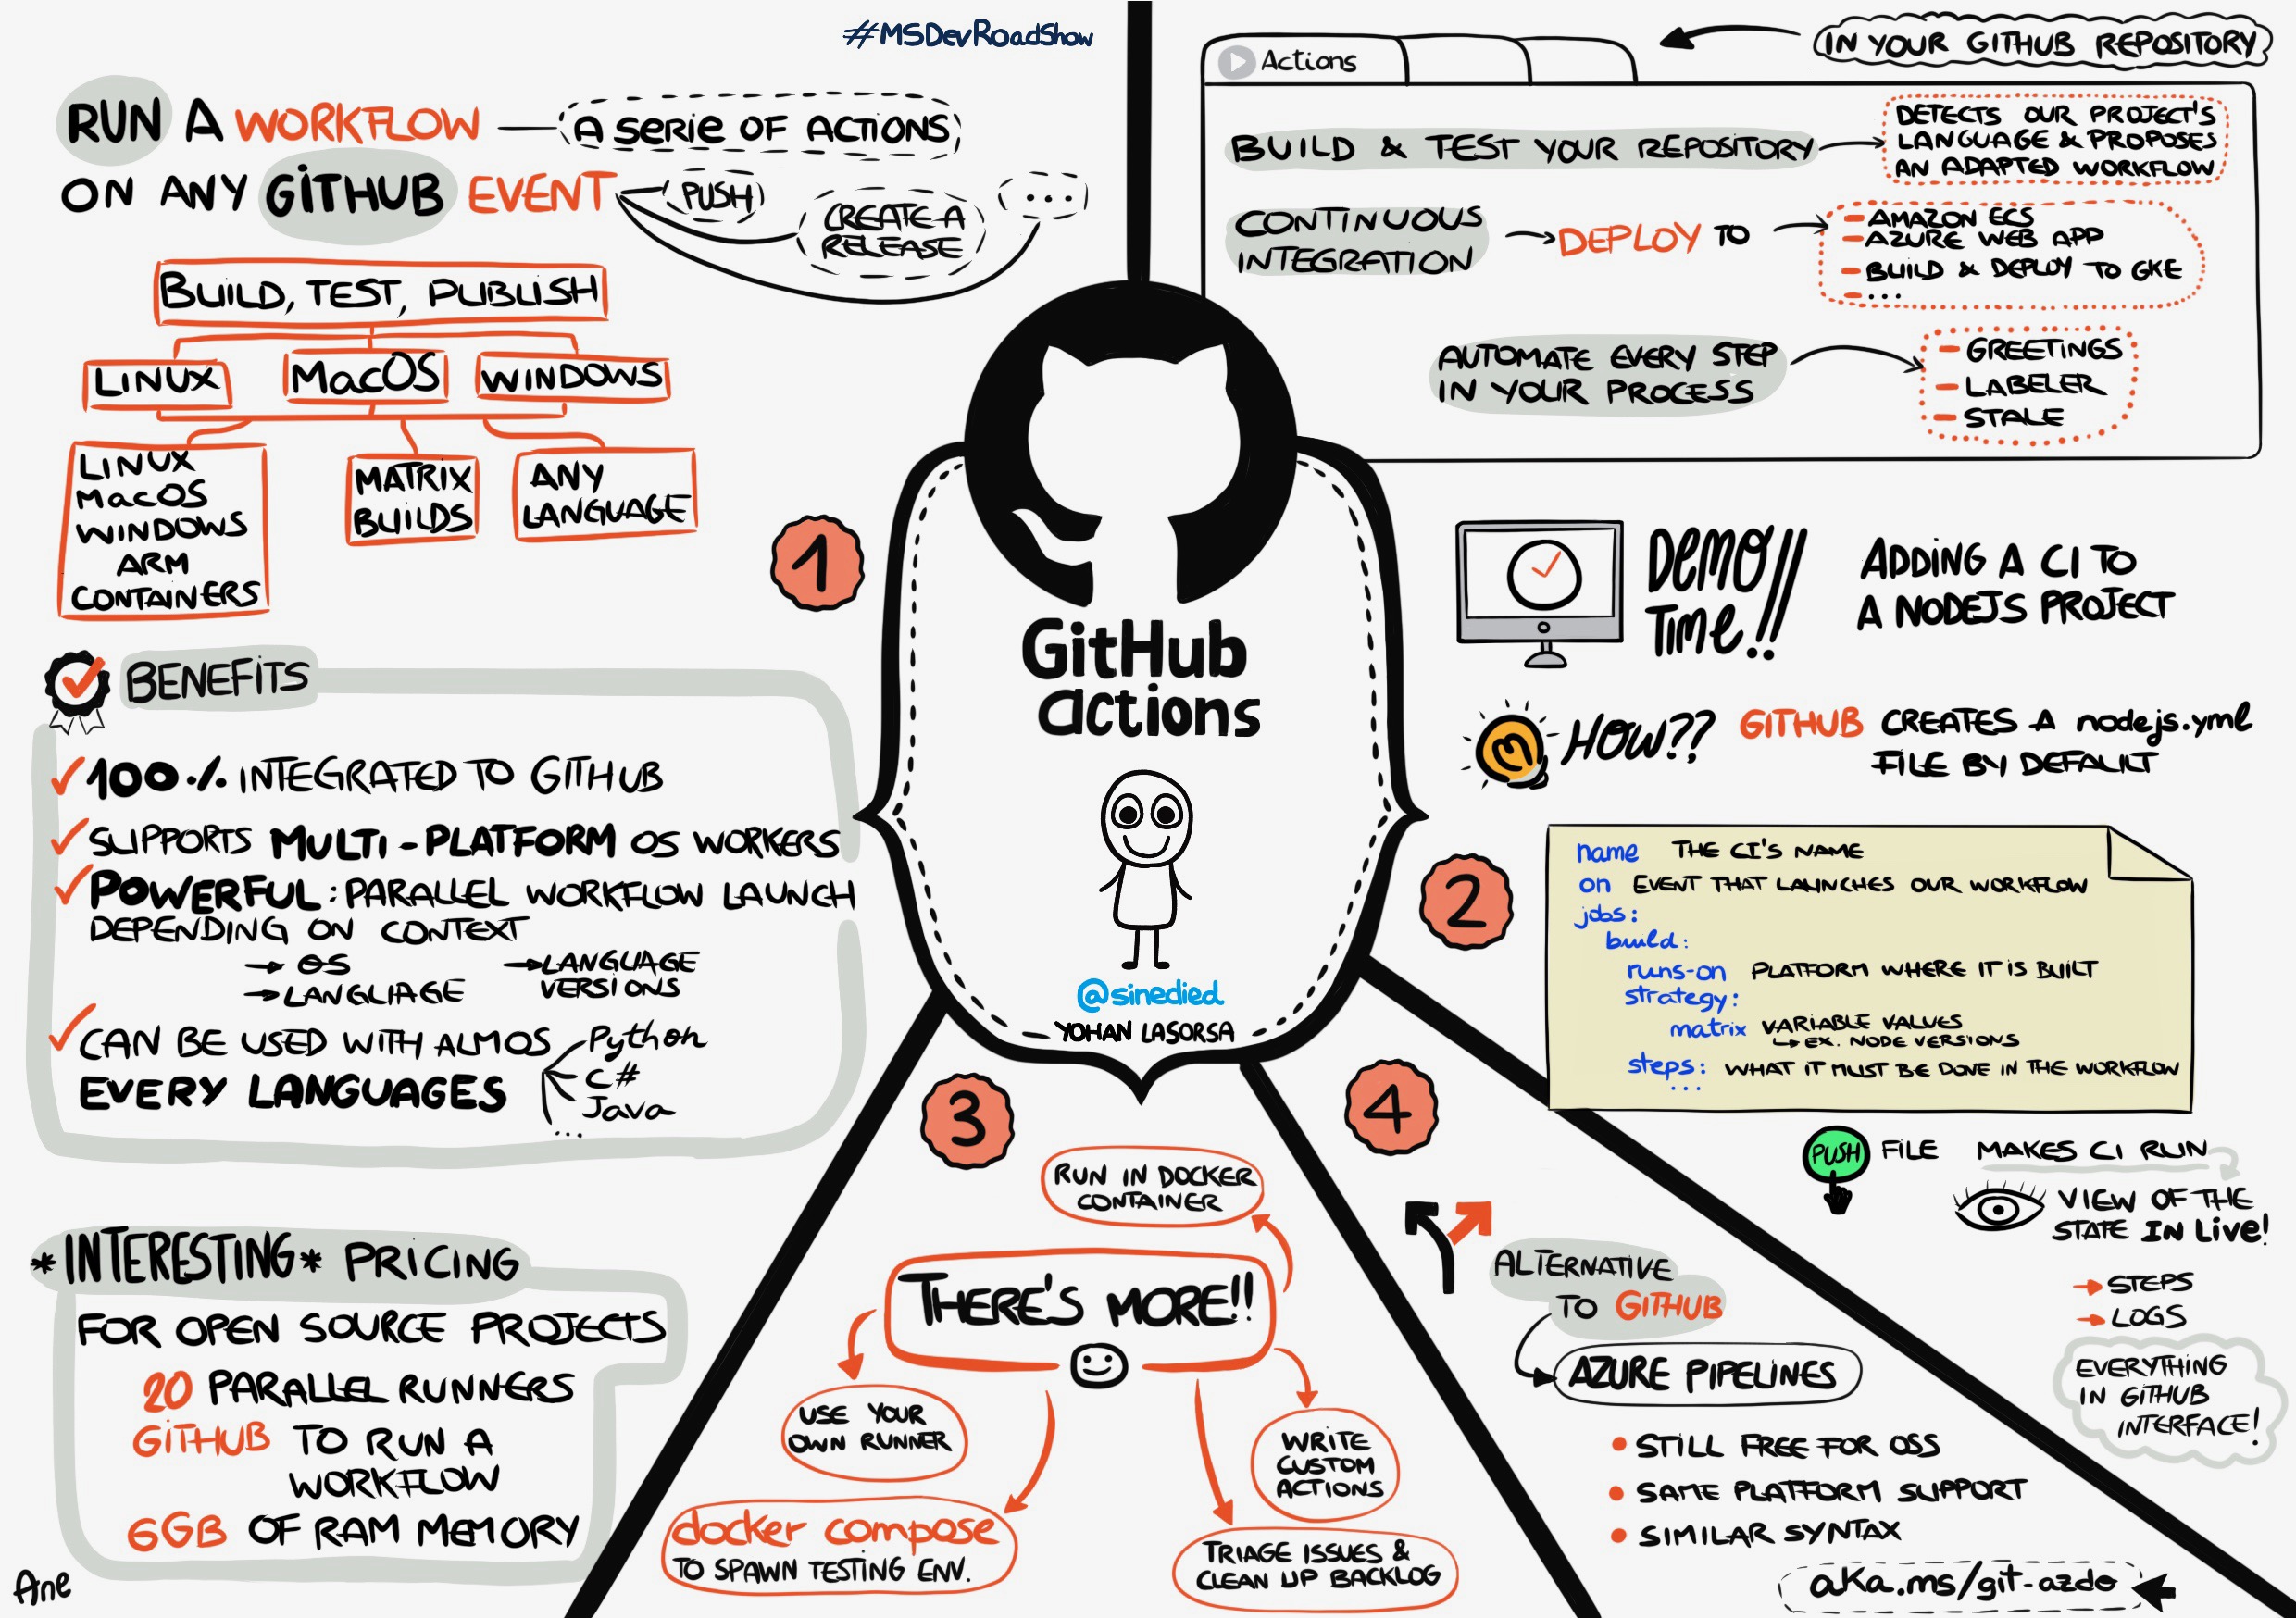 #MSDevRoadShow
RUN A WORKFLOW
A SERIE OF ACTIONS
ON ANY GITHUB EVENT
PUSH
CREATE A
RELEASE
...
BUILD, TEST, PUBLISH
LINUX
MacOS
WINDOWS
LINUX
MacOS
WINDOWS
ARM
CONTAINERS
MATRIX
BUILDS
ANY
LANGUAGE
1
BENEFITS
100% INTEGRATED TO GITHUB
SUPPORTS MULTI-PLATFORM OS WORKERS
POWERFUL: PARALLEL WORKFLOW LAUNCH
DEPENDING ON CONTEXT
→ OS
→ LANGUAGE
→ LANGUAGE
VERSIONS
CAN BE USED WITH ALMOS
EVERY LANGUAGES
Python
C#
Java
...
*INTERESTING* PRICING
FOR OPEN SOURCE PROJECTS
20 PARALLEL RUNNERS
GITHUB TO RUN A
WORKFLOW
6GB OF RAM MEMORY
Ane
GitHub
actions
@sinedied
YOHAN LASORSA
IN YOUR GITHUB REPOSITORY
Actions
BUILD & TEST YOUR REPOSITORY
DETECTS OUR PROJECT'S
LANGUAGE & PROPOSES
AN ADAPTED WORKFLOW
CONTINUOUS
INTEGRATION
DEPLOY TO
- AMAZON ECS
- AZURE WEB APP
- BUILD & DEPLOY TO GKE
- ...
AUTOMATE EVERY STEP
IN YOUR PROCESS
- GREETINGS
- LABELER
- STALE
DEMO
TIME!!
ADDING A CI TO
A NODEJS PROJECT
HOW??
GITHUB CREATES A nodejs.yml
FILE BY DEFAULT
2
name THE CI'S NAME
on EVENT THAT LAUNCHES OUR WORKFLOW
jobs:
build:
runs-on PLATFORM WHERE IT IS BUILT
strategy:
matrix VARIABLE VALUES
↳ EX. NODE VERSIONS
steps: WHAT IT MUST BE DONE IN THE WORKFLOW
...
PUSH FILE MAKES CI RUN
VIEW OF THE
STATE IN LIVE!
→ STEPS
→ LOGS
EVERYTHING
IN GITHUB
INTERFACE!
3
THERE'S MORE!!
RUN IN DOCKER
CONTAINER
USE YOUR
OWN RUNNER
docker compose
TO SPAWN TESTING ENV.
WRITE
CUSTOM
ACTIONS
TRIAGE ISSUES &
CLEAN UP BACKLOG
4
ALTERNATIVE
TO GITHUB
AZURE PIPELINES
• STILL FREE FOR OSS
• SAME PLATFORM SUPPORT
• SIMILAR SYNTAX
aka.ms/git-azdo